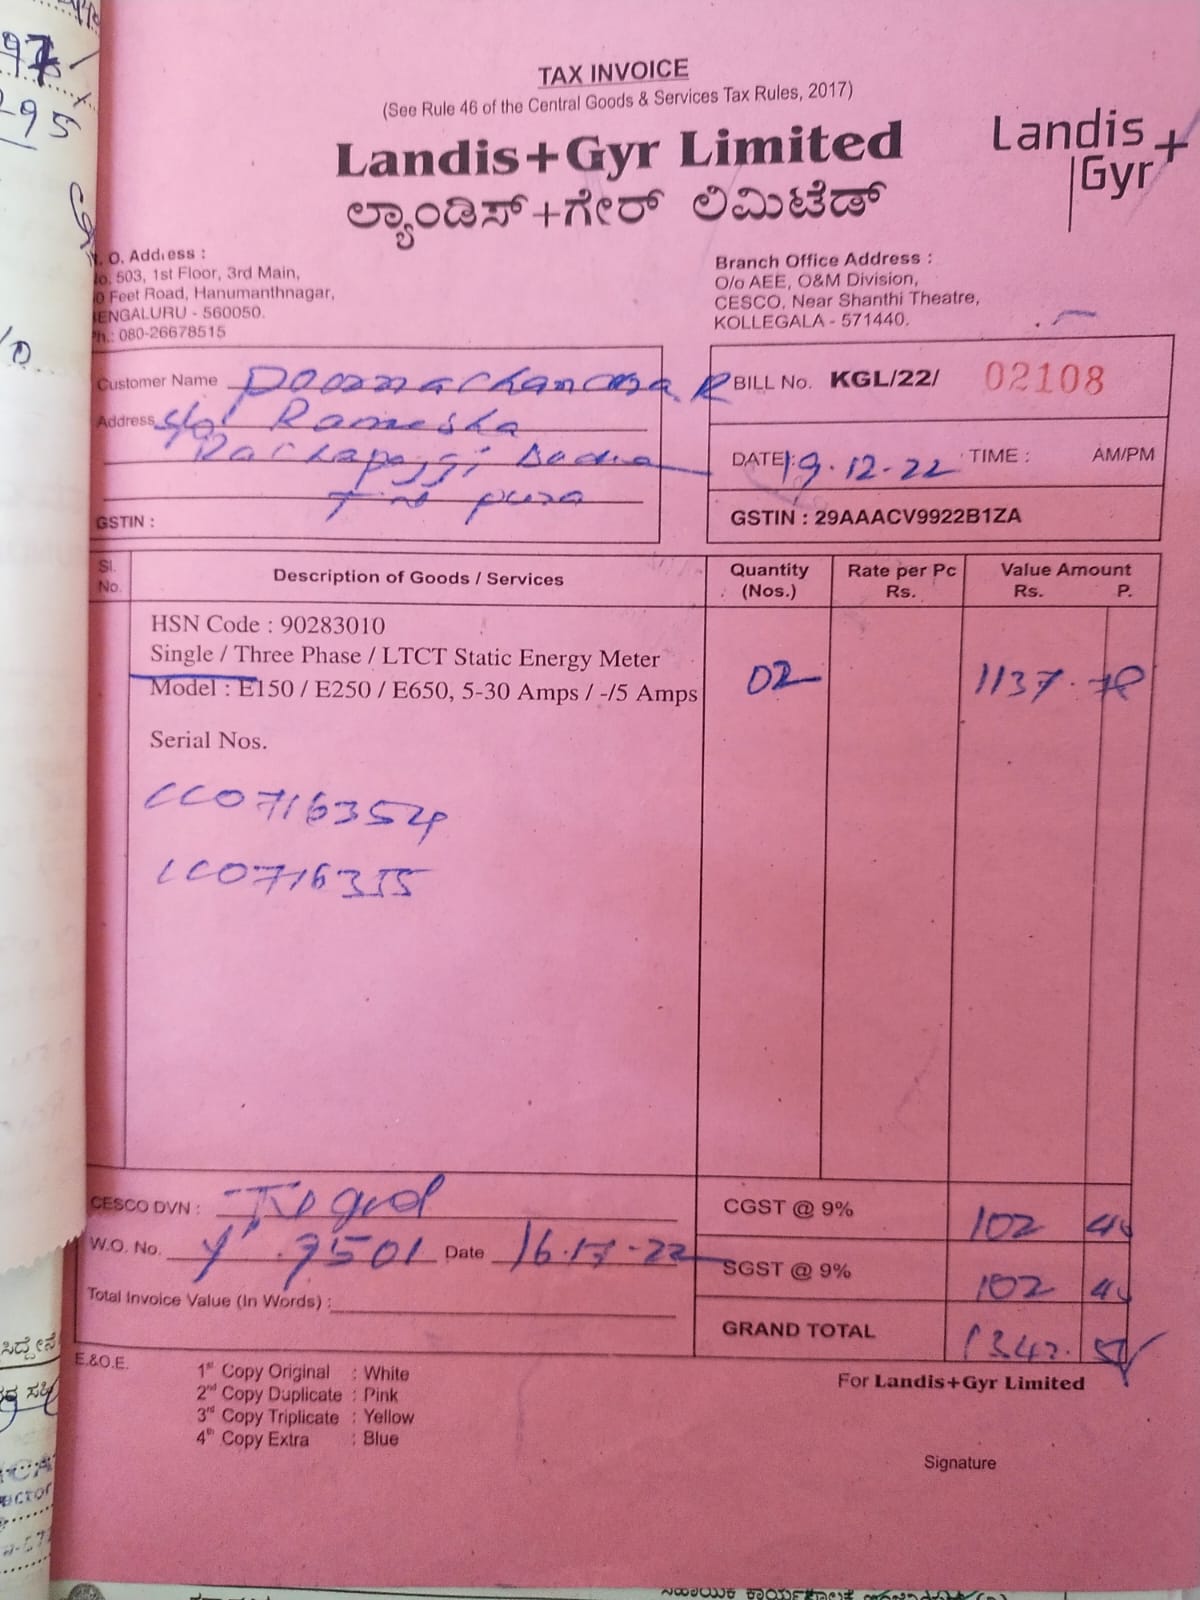 TAX INVOICE
(See Rule 46 of the Central Goods & Services Tax Rules, 2017)
Landis+Gyr Limited
ಲ್ಯಾಂಡಿಸ್+ಗೇರ್ ಲಿಮಿಟೆಡ್
Landis+
Gyr
O. Address :
503, 1st Floor, 3rd Main,
Feet Road, Hanumanthnagar,
BENGALURU - 560050.
Ph.: 080-26678515
Branch Office Address :
O/o AEE, O&M Division,
CESCO, Near Shanthi Theatre,
KOLLEGALA - 571440.
Customer Name Poornachandra R
Address S/o Ramesha
GSTIN :
BILL No. KGL/22/ 02108
DATE : 19.12.22 TIME : AM/PM
GSTIN : 29AAACV9922B1ZA
Sl. No. Description of Goods / Services Quantity (Nos.) Rate per Pc Rs. Value Amount Rs. P.
HSN Code : 90283010
Single / Three Phase / LTCT Static Energy Meter
Model : E150 / E250 / E650, 5-30 Amps / -/5 Amps
02 1137.78
Serial Nos.
CC0716354
CC0716355
CESCO DVN :
W.O. No. 7501 Date
Total Invoice Value (In Words) :
CGST @ 9% 102 40
SGST @ 9% 102 40
GRAND TOTAL 1342.
E.&O.E.
1st Copy Original : White
2nd Copy Duplicate : Pink
3rd Copy Triplicate : Yellow
4th Copy Extra : Blue
For Landis+Gyr Limited
Signature